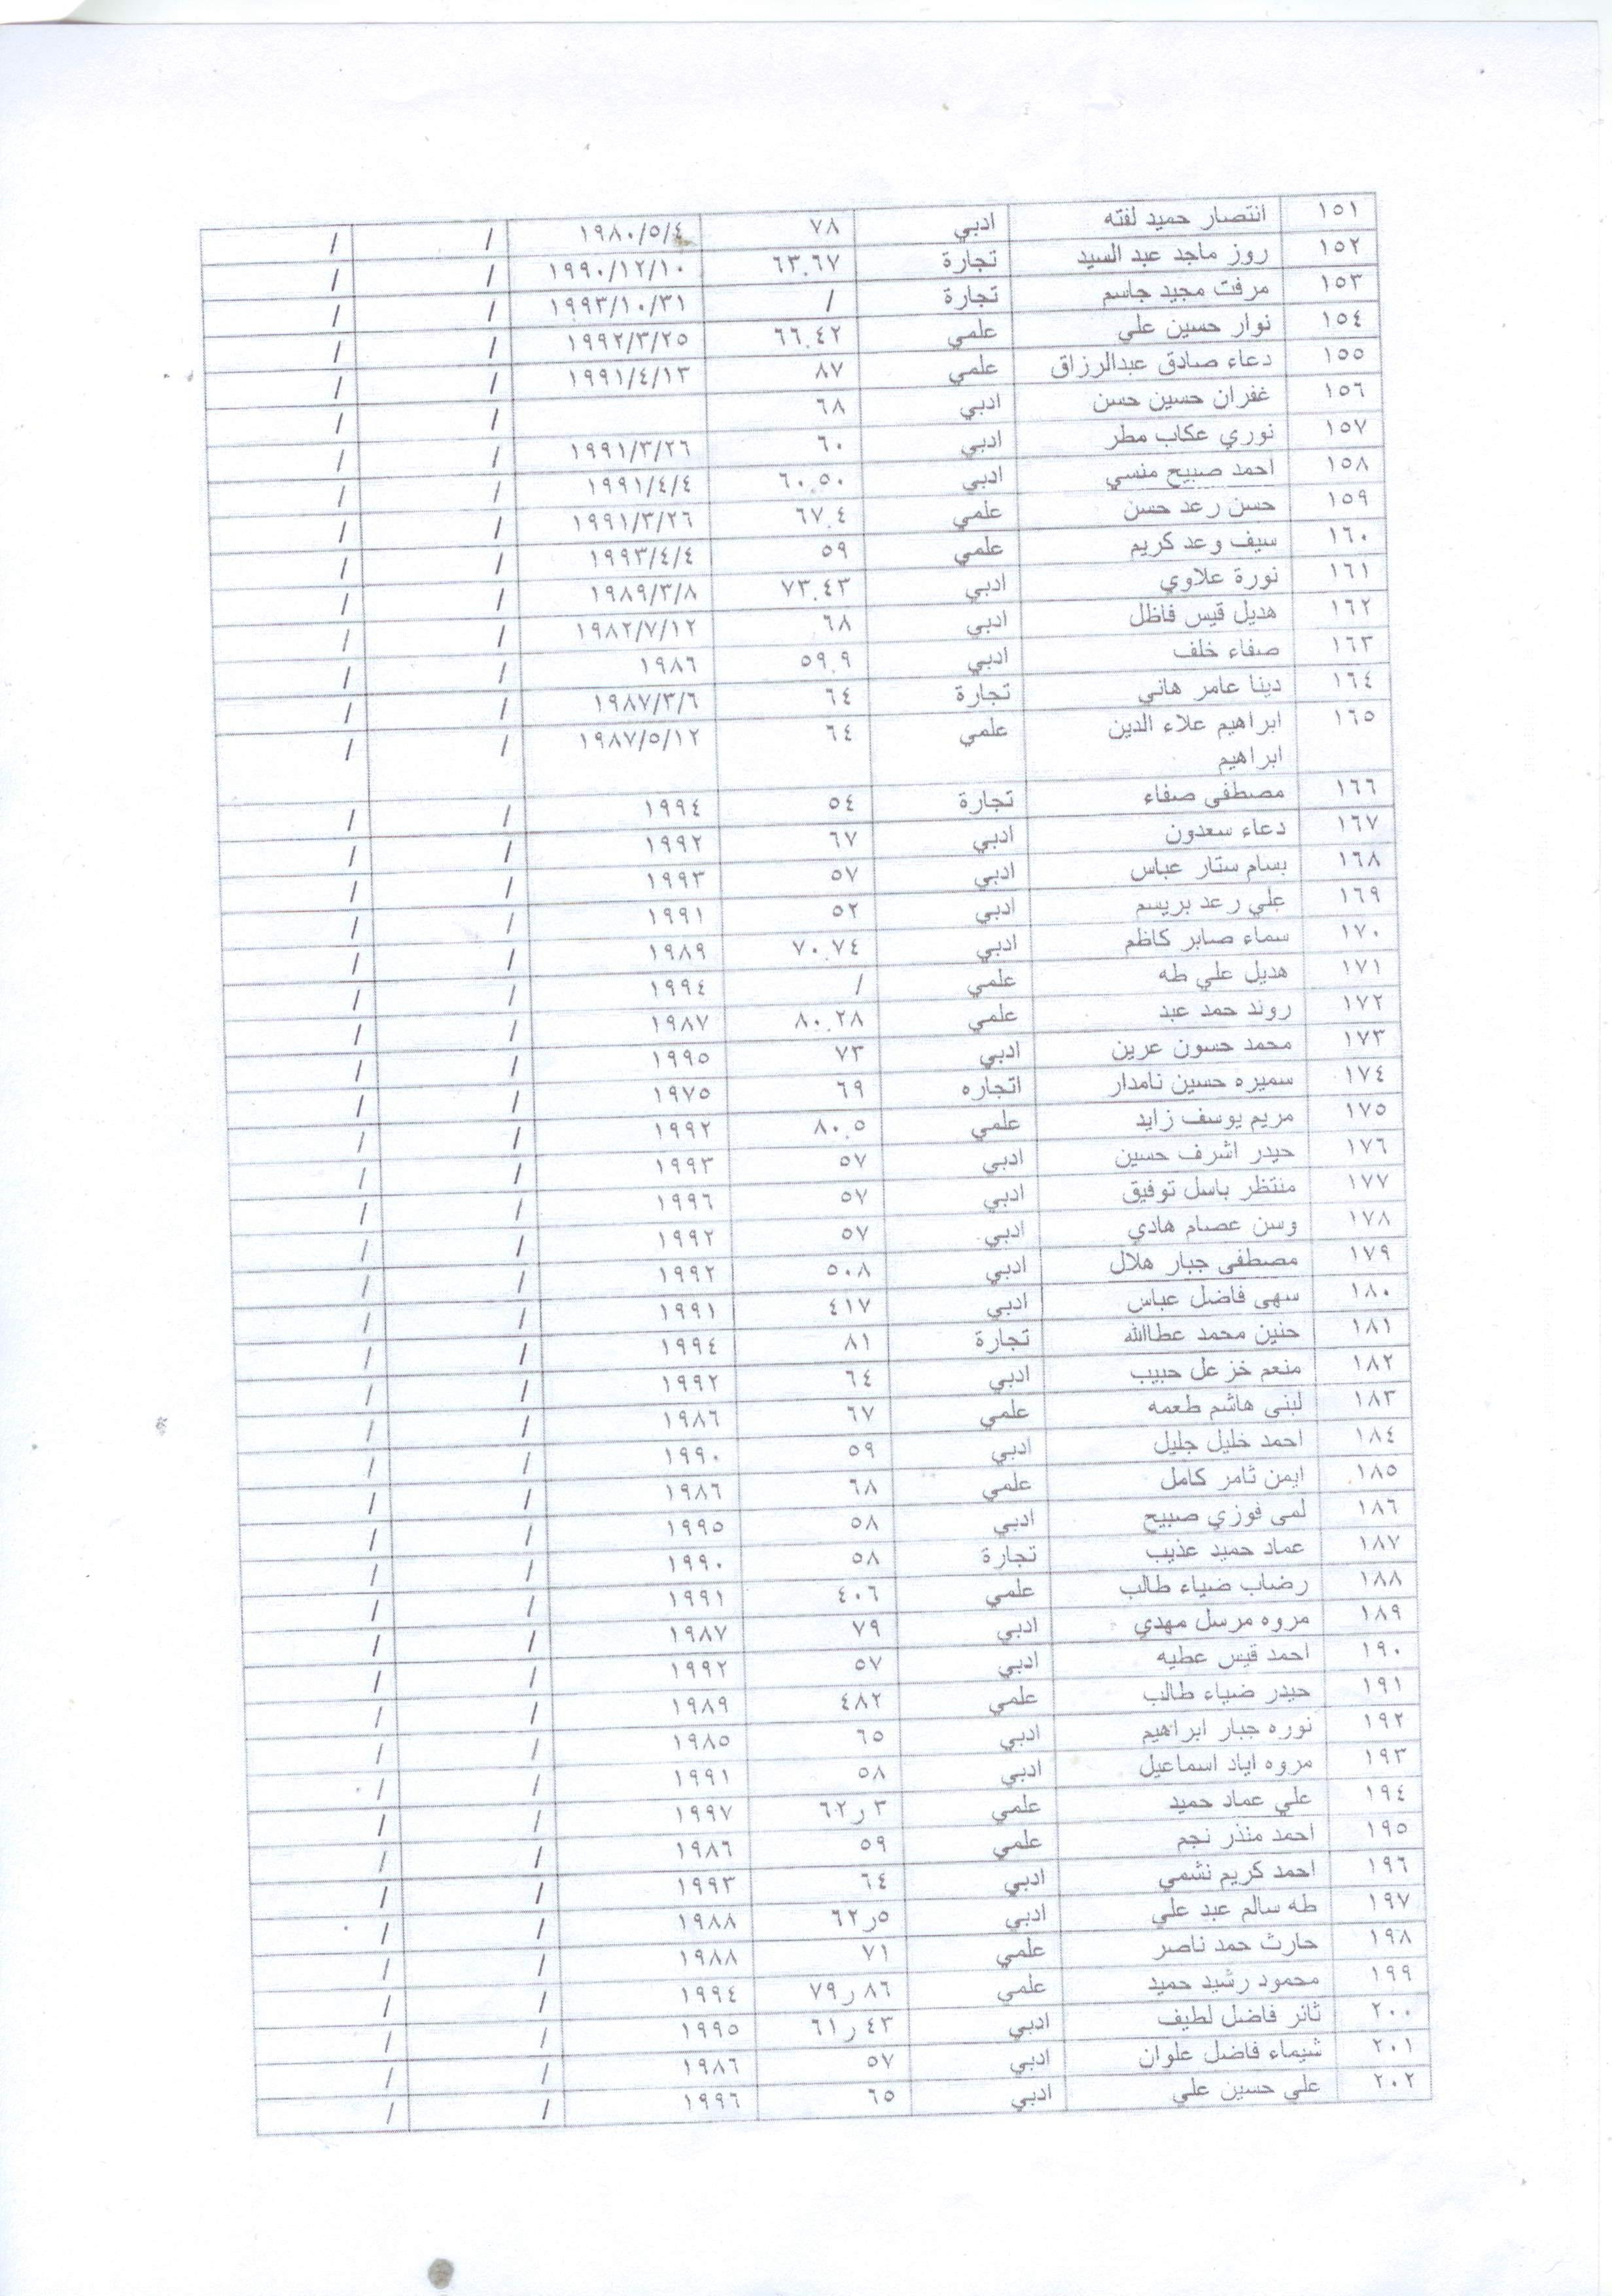 ١٥١ انتصار حميد لفته ادبي ٧٨ ١٩٨٠/٥/٤ / /
١٥٢ روز ماجد عبد السيد تجارة ٦٣.٦٧ ١٩٩٠/١٢/١٠ / /
١٥٣ مرفت مجيد جاسم تجارة / ١٩٩٣/١٠/٣١ / /
١٥٤ نوار حسين علي علمي ٦٦.٤٢ ١٩٩٢/٣/٢٥ / /
١٥٥ دعاء صادق عبدالرزاق علمي ٨٧ ١٩٩١/٤/١٣ / /
١٥٦ غفران حسين حسن ادبي ٦٨ / /
١٥٧ نوري عكاب مطر ادبي ٦٠ ١٩٩١/٣/٢٦ / /
١٥٨ احمد صبيح منسي ادبي ٦٠.٥٠ ١٩٩١/٤/٤ / /
١٥٩ حسن رعد حسن علمي ٦٧.٤ ١٩٩١/٣/٢٦ / /
١٦٠ سيف وعد كريم علمي ٥٩ ١٩٩٣/٤/٤ / /
١٦١ نورة علاوي ادبي ٧٣.٤٣ ١٩٨٩/٣/٨ / /
١٦٢ هديل قيس فاظل ادبي ٦٨ ١٩٨٢/٧/١٢ / /
١٦٣ صفاء خلف ادبي ٥٩.٩ ١٩٨٦ / /
١٦٤ دينا عامر هاني تجارة ٦٤ ١٩٨٧/٣/٦ / /
١٦٥ ابراهيم علاء الدين علمي ٦٤ ١٩٨٧/٥/١٢ / /
ابراهيم
١٦٦ مصطفى صفاء تجارة ٥٤ ١٩٩٤ / /
١٦٧ دعاء سعدون ادبي ٦٧ ١٩٩٢ / /
١٦٨ بسام ستار عباس ادبي ٥٧ ١٩٩٣ / /
١٦٩ علي رعد بريسم ادبي ٥٢ ١٩٩١ / /
١٧٠ سماء صابر كاظم ادبي ٧٠.٧٤ ١٩٨٩ / /
١٧١ هديل علي طه علمي / ١٩٩٤ / /
١٧٢ روند حمد عبد علمي ٨٠.٢٨ ١٩٨٧ / /
١٧٣ محمد حسون عرين ادبي ٧٣ ١٩٩٥ / /
١٧٤ سميره حسين نامدار اتجاره ٦٩ ١٩٧٥ / /
١٧٥ مريم يوسف زايد علمي ٨٠.٥ ١٩٩٢ / /
١٧٦ حيدر اشرف حسين ادبي ٥٧ ١٩٩٣ / /
١٧٧ منتظر باسل توفيق ادبي ٥٧ ١٩٩٦ / /
١٧٨ وسن عصام هادي ادبي ٥٧ ١٩٩٢ / /
١٧٩ مصطفى جبار هلال ادبي ٥٠٨ ١٩٩٢ / /
١٨٠ سهى فاضل عباس ادبي ٤١٧ ١٩٩١ / /
١٨١ حنين محمد عطاالله تجارة ٨١ ١٩٩٤ / /
١٨٢ منعم خزعل حبيب ادبي ٦٤ ١٩٩٢ / /
١٨٣ لبنى هاشم طعمه علمي ٦٧ ١٩٨٦ / /
١٨٤ احمد خليل جليل ادبي ٥٩ ١٩٩٠ / /
١٨٥ ايمن ثامر كامل علمي ٦٨ ١٩٨٦ / /
١٨٦ لمى فوزي صبيح ادبي ٥٨ ١٩٩٥ / /
١٨٧ عماد حميد عذيب تجارة ٥٨ ١٩٩٠ / /
١٨٨ رضاب ضياء طالب علمي ٤٠٦ ١٩٩١ / /
١٨٩ مروه مرسل مهدي ادبي ٧٩ ١٩٨٧ / /
١٩٠ احمد قيس عطيه ادبي ٥٧ ١٩٩٢ / /
١٩١ حيدر ضياء طالب علمي ٤٨٢ ١٩٨٩ / /
١٩٢ نوره جبار ابراهيم ادبي ٦٥ ١٩٨٥ / /
١٩٣ مروه اياد اسماعيل ادبي ٥٨ ١٩٩١ / /
١٩٤ علي عماد حميد علمي ٣ر٦٢ ١٩٩٧ / /
١٩٥ احمد منذر نجم علمي ٥٩ ١٩٨٦ / /
١٩٦ احمد كريم نشمي ادبي ٦٤ ١٩٩٣ / /
١٩٧ طه سالم عبد علي ادبي ٥ر٦٢ ١٩٨٨ / /
١٩٨ حارث حمد ناصر علمي ٧١ ١٩٨٨ / /
١٩٩ محمود رشيد حميد علمي ٨٦ر٧٩ ١٩٩٤ / /
٢٠٠ ثائر فاضل لطيف ادبي ٤٣ر٦١ ١٩٩٥ / /
٢٠١ شيماء فاضل علوان ادبي ٥٧ ١٩٨٦ / /
٢٠٢ علي حسين علي ادبي ٦٥ ١٩٩٦ / /